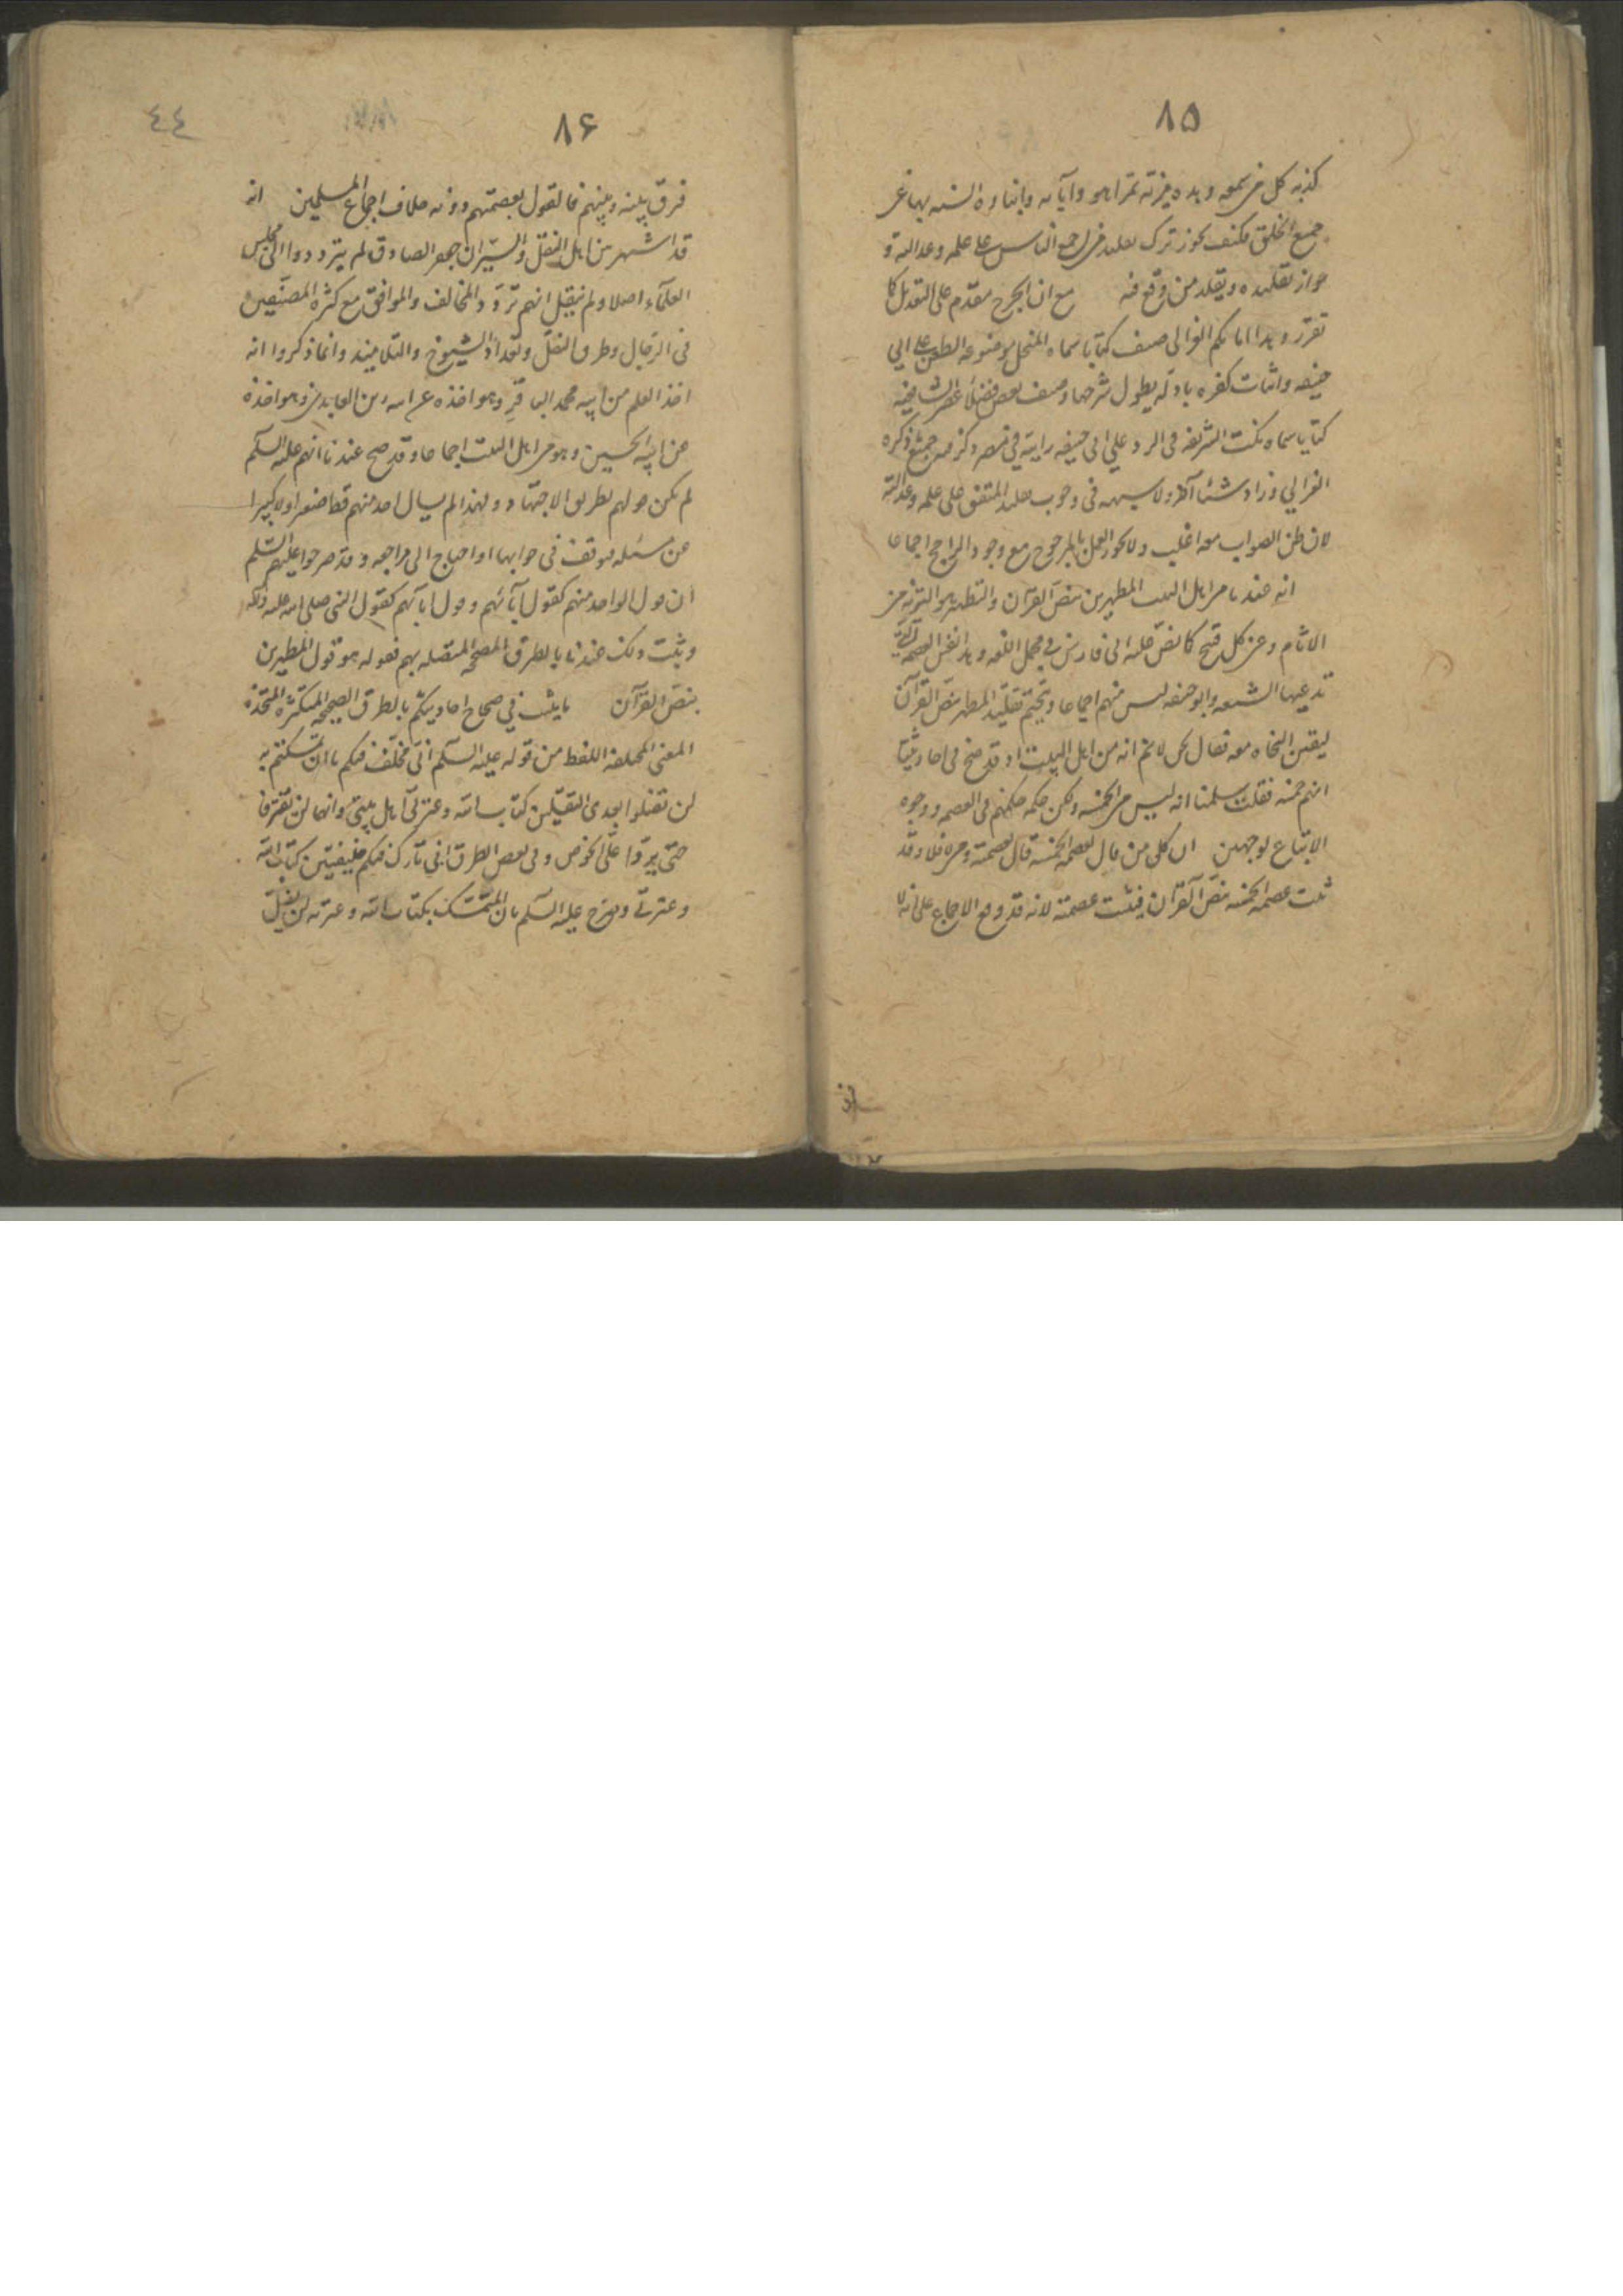 ٨٥
كذبه كل من سمعه وهذه مزيته تمتراها هو وآباءه وابناؤه السنه بها عن
جميع الخلق فكيف يجوز ترك تقليد من اجمع الناس على علمه وعدالته و
جواز تقليده ويقلد من وقع فيه مع ان الجرح مقدم على التعديل كما
تقرر وهذا امامكم الغزالي صنف كتابا سماه المنخل موضوعه الطعن على ابي
حنيفه واثبات كفره بادله يطول شرحها وصنف بعض فضلاء عصر الشافعيه
كتابا سماه نكت الشريفه في الرد على ابي حنيفه رايته في مصر وذكر فيه جميع ما ذكره
الغزالي وزاد شيئا آخر ولا شبهه في وجوب تقليد المتفق على علمه وعدالته
لان ظن الصواب معه اغلب ولا يجوز العمل بالمرجوح مع وجود الراجح اجماعا
انه عندنا من اهل البيت المطهرين بنص القرآن والتطهير هو التنزيه عن
الاثام وعن كل قبيح كما نص عليه ابن فارس في مجمل اللغه وهذا نفس العصمه التي
تدعيها الشيعه وابو حنيفه ليس منهم اجماعا ويتحتم تقليد المطهر بنص القرآن
ليقين النجاه معه فقال نحن لا نعلم انه من اهل البيت اذ قد صح في احاديثنا
انهم خمسه فقلت سلمنا انه ليس من الخمسه ولكن حكمه حكمهم في العصمه ووجوب
الاتباع لوجهين ان كل من قال بعصمه الخمسه قال بعصمته ومن لا فلا وقد
ثبت عصمه الخمسه بنص القرآن فيثبت عصمته لانه قد وقع الاجماع على انه لا
فرق
٨۶
٤٤
فرق بينه وبينهم فالقول بعصمتهم دونه خلاف اجماع المسلمين انه
قد اشتهر بين اهل النقل والسير ان جعفر الصادق لم يترددوا الى مجلس
العلماء اصلا ولم ينقل انهم تردد والمخالف والموافق مع كثره المصنفين
في الرجال وطرق النقل وتعداد الشيوخ والتلاميذ وانما ذكروا انه
اخذ العلم من ابيه محمد الباقر وهو اخذه عن ابيه زين العابدين وهو اخذه
عن ابيه الحسين وهو من اهل البيت اجماعا وقد صح عندنا انهم عليه السلم
لم يكن قولهم بطريق الاجتهاد ولهذا لم يسال احد منهم قط صغيرا ولا كبيرا
عن مسئله فوقف في جوابها او احتاج الى مراجعه وقد صرحوا عليهم السلم
ان قول الواحد منهم كقول آبائهم وقول ابائهم كقول النبي صلى الله عليه وآله
ويثبت ذلك عندنا بالطرق الصحيحه المتصله بهم فقوله هو قول المطهرين
بنص القرآن ما يثبت في صحاح احاديثكم بالطرق الصحيحه المتكثره المتحده
المعنى المختلفه اللفظ من قوله عليه السلم اني مخلف فيكم ما ان تمسكتم به
لن تضلوا بعدى الثقيلين كتاب الله وعترتي اهل بيتي وانهما لن يفترقا
حتى يردا على الحوض وفي بعض الطرق اني تارك فيكم خليفتين كتاب الله
وعترتي وصرح عليه السلم بان المتمسك بكتاب الله وعترته لن يضل